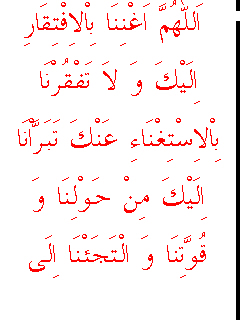 اَللّٰهُمَّ اَغْنِنَا بِاْلاِفْتِقَارِ
اِلَيْكَ وَ لاَ تَفْقُرْنَا
بِاْلاِسْتِغْنَاءِ عَنْكَ تَبَرَّاْنَا
اِلَيْكَ مِنْ حَوْلِنَا وَ
قُوَّتِنَا وَ الْتَجَئْنَا اِلَى